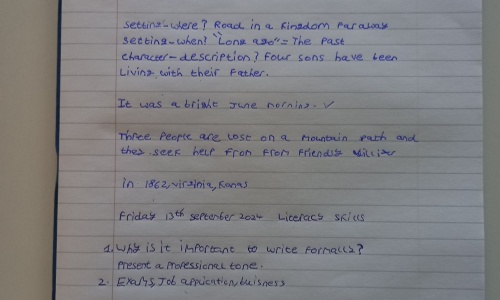 Setting-where? Road in a Kingdom far away
Setting-when? "Long ago" = The past
character-description? Four sons have been
Living with their Father.
It was a bright June morning. ✓
Three People are lost on a mountain path and
they seek help from from friendly
in 1862, virginia,
Friday 13th september 2024 Literacy skills
1. Why is it important to write formally?
Present a professional tone.
2. Essays, Job application, buisness